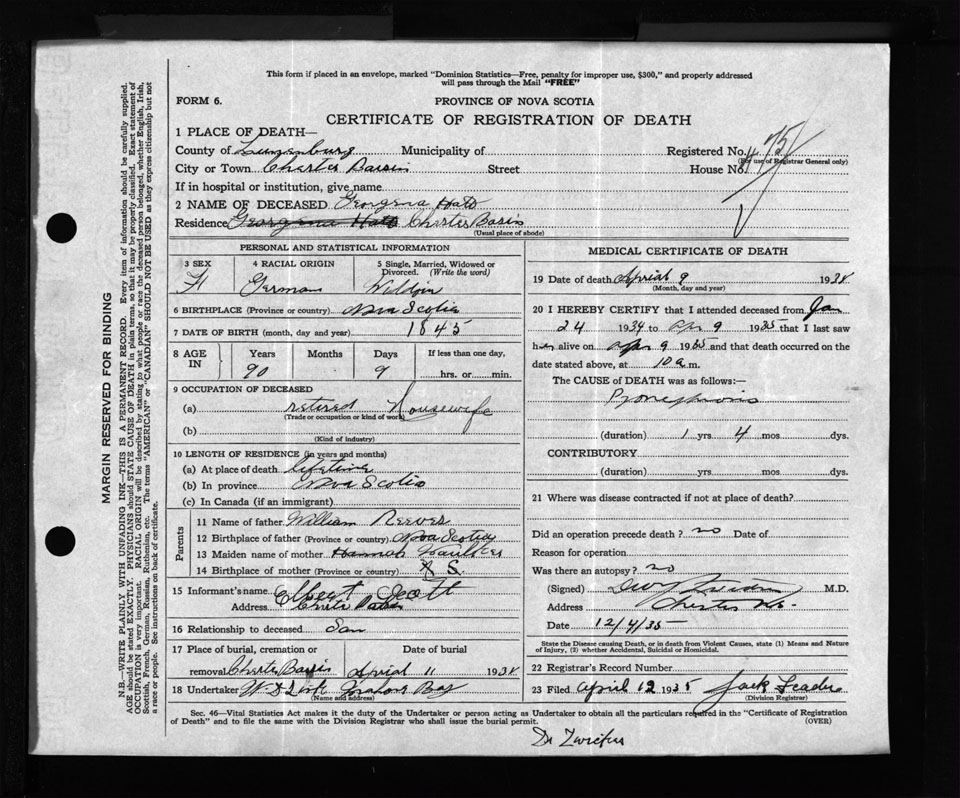 This form if placed in an envelope, marked "Dominion Statistics—Free, penalty for improper use, $300," and properly addressed
will pass through the Mail "FREE"
FORM 6.
PROVINCE OF NOVA SCOTIA
CERTIFICATE OF REGISTRATION OF DEATH
1 PLACE OF DEATH—
County of Lunenburg Municipality of Registered No. 75
(For use of Registrar General only)
City or Town Chester Bassin Street House No.
If in hospital or institution, give name
2 NAME OF DECEASED Georgena Hatt
Residence Georgena Hatt Chester Basin
(Usual place of abode)
PERSONAL AND STATISTICAL INFORMATION
3 SEX 4 RACIAL ORIGIN 5 Single, Married, Widowed or
Divorced. (Write the word)
F German
6 BIRTHPLACE (Province or country) Nova Scotia
7 DATE OF BIRTH (month, day and year) 1845
8 AGE IN Years Months Days If less than one day,
90 9 hrs. or min.
9 OCCUPATION OF DECEASED
(a) retired Housewife
(Trade or occupation or kind of work)
(b)
(Kind of industry)
10 LENGTH OF RESIDENCE (in years and months)
(a) At place of death lifetime
(b) In province Nova Scotia
(c) In Canada (if an immigrant)
Parents
11 Name of father William Reeves
12 Birthplace of father (Province or country) Nova Scotia
13 Maiden name of mother Hannah
14 Birthplace of mother (Province or country) N S.
15 Informant's name
Address Chester Basin
16 Relationship to deceased Son
17 Place of burial, cremation or Date of burial
removal Chester Bassin April 11 193
18 Undertaker Mahone Bay
(Name and address)
MEDICAL CERTIFICATE OF DEATH
19 Date of death April 9 193
(Month, day and year)
20 I HEREBY CERTIFY that I attended deceased from Jan
24 1934 to Apr 9 1935 that I last saw
her alive on Apr 9 1935 and that death occurred on the
date stated above, at 10 a.m.
The CAUSE of DEATH was as follows:—
Pyonephrosis
(duration) 1 yrs 4 mos. dys.
CONTRIBUTORY
(duration) yrs. mos. dys.
21 Where was disease contracted if not at place of death?
Did an operation precede death ? no Date of
Reason for operation
Was there an autopsy? no
(Signed) M.D.
Address Chester N.S.
Date 12/4/35
State the Disease causing Death, or in death from Violent Causes, state (1) Means and Nature
of Injury, (2) whether Accidental, Suicidal or Homicidal.
22 Registrar's Record Number
23 Filed April 12 1935 Jack
(Division Registrar)
Sec. 46—Vital Statistics Act makes it the duty of the Undertaker or person acting as Undertaker to obtain all the particulars required in the "Certificate of Registration
of Death" and to file the same with the Division Registrar who shall issue the burial permit. (OVER)
Dr
MARGIN RESERVED FOR BINDING
N.B.—WRITE PLAINLY WITH UNFADING INK—THIS IS A PERMANENT RECORD. Every item of information should be carefully supplied.
AGE should be stated EXACTLY. PHYSICIANS should STATE CAUSE OF DEATH in plain terms, so that it may be properly classified. Exact statement of
OCCUPATION is very important. RACIAL ORIGIN will be described by stating to what people or race the deceased person belonged, whether English, Irish,
Scottish, French, German, Russian, Ruthenian, etc. The terms "AMERICAN" or "CANADIAN" SHOULD NOT BE USED as they express citizenship but not
a race or people. See instructions on back of certificate.